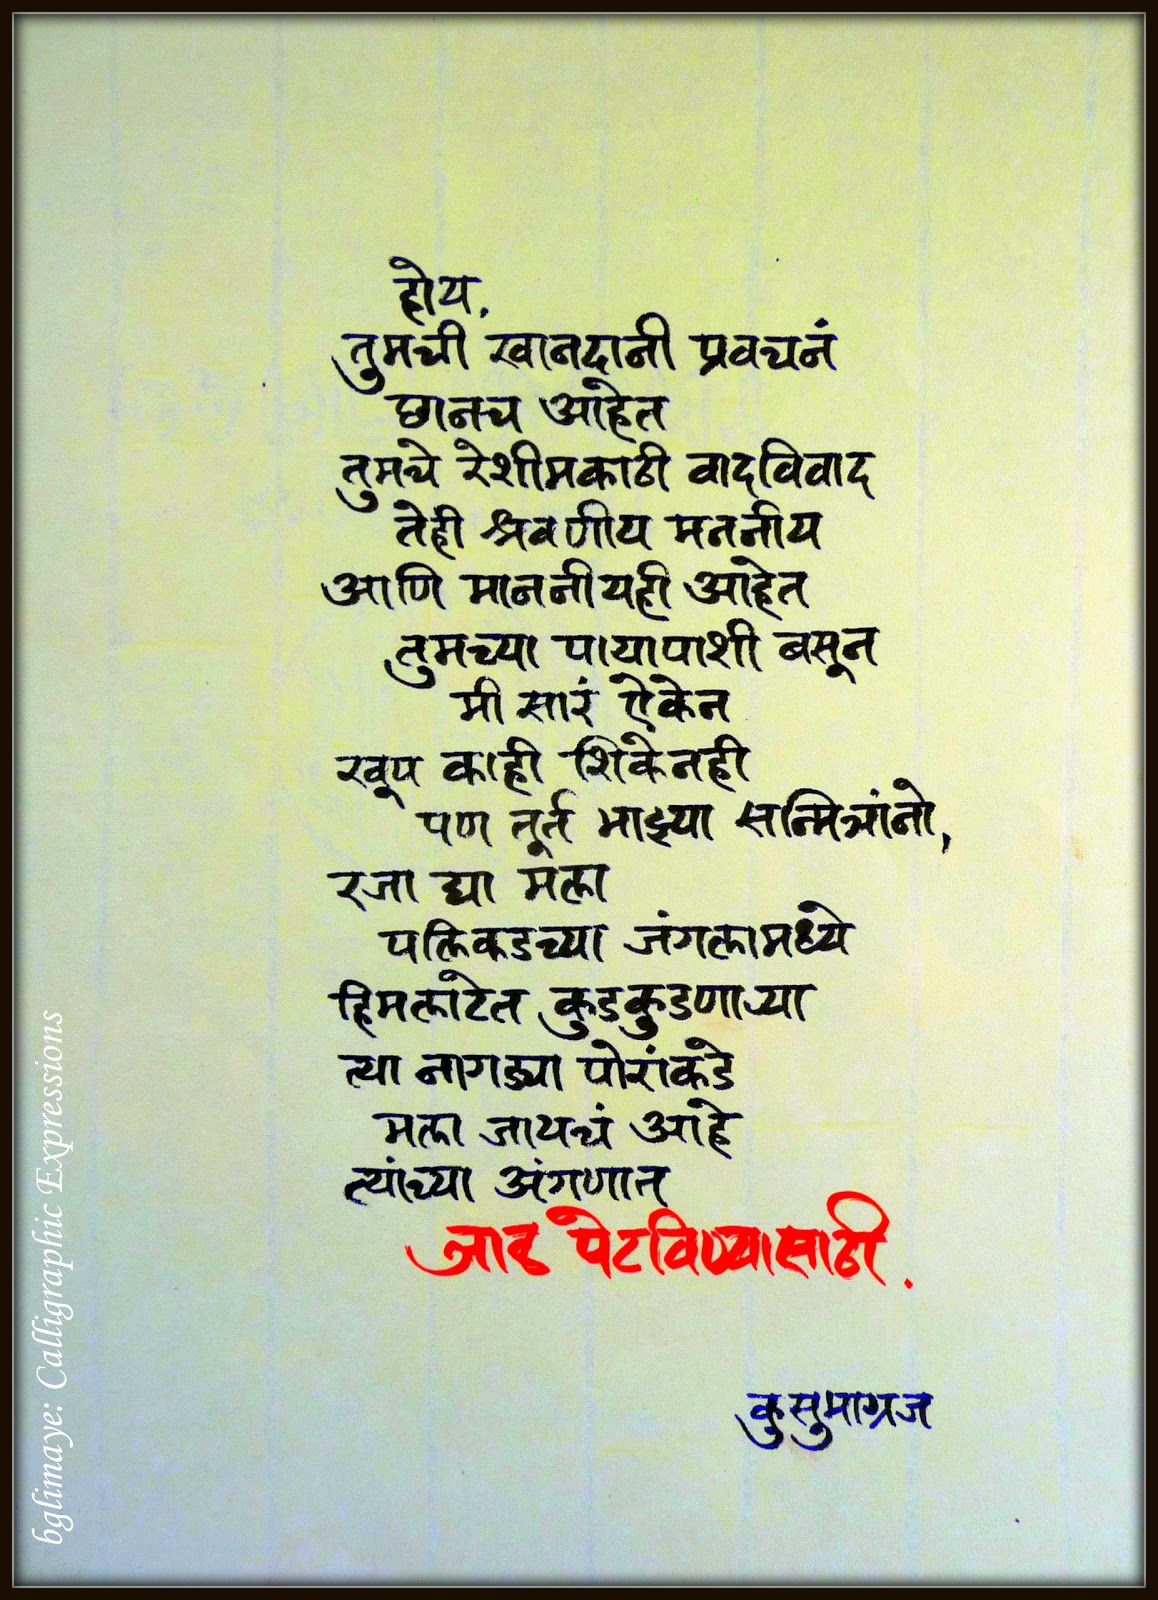 होय.
तुमची खानदानी प्रवचनं
छानच आहेत
तुमचे रेशीमकाठी वादविवाद
तेही श्रवणीय मननीय
आणि माननीयही आहेत
तुमच्या पायापाशी बसून
मी सारं ऐकेन
खूप काही शिकेनही
पण तूर्त माझ्या सन्मित्रांनो,
रजा द्या मला
पलिकडच्या जंगलामध्ये
हिमलाटेत कुडकुडणाऱ्या
त्या नागड्या पोरांकडे
मला जायचं आहे
त्यांच्या अंगणात
जाळ पेटविण्यासाठी.
कुसुमाग्रज
bglimaye: Calligraphic Expressions